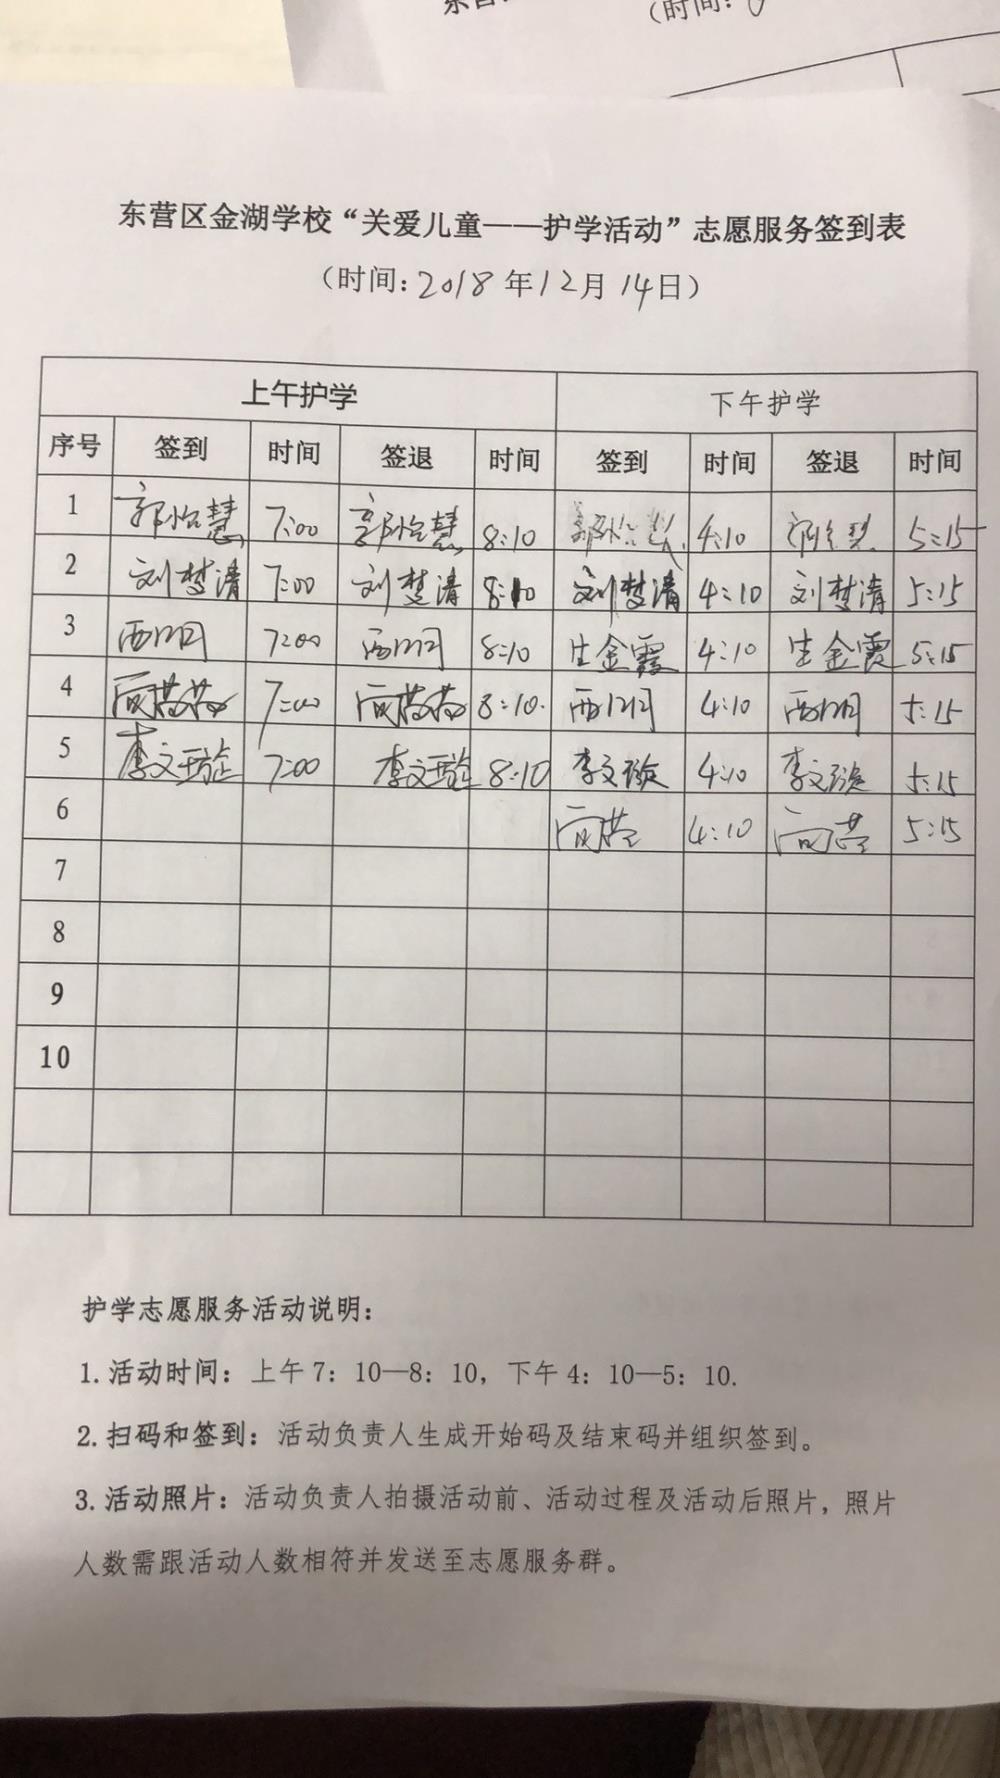 （时间：
东营区金湖学校“关爱儿童——护学活动”志愿服务签到表
（时间：2018年12月14日）
上午护学 下午护学
序号 签到 时间 签退 时间 签到 时间 签退 时间
1 郭怡慧 7:00 郭怡慧 8:10 4:10 5:15
2 刘梦清 7:00 刘梦清 8:10 刘梦清 4:10 刘梦清 5:15
3 7:00 8:10 生金霞 4:10 生金霞 5:15
4 7:00 8:10. 4:10 5:15
5 李文璇 7:00 李文璇 8:10 李文璇 4:10 李文璇 5:15
6 4:10 5:15
7
8
9
10
护学志愿服务活动说明：
1.活动时间：上午7：10—8：10，下午4：10—5：10.
2.扫码和签到：活动负责人生成开始码及结束码并组织签到。
3.活动照片：活动负责人拍摄活动前、活动过程及活动后照片，照片
人数需跟活动人数相符并发送至志愿服务群。